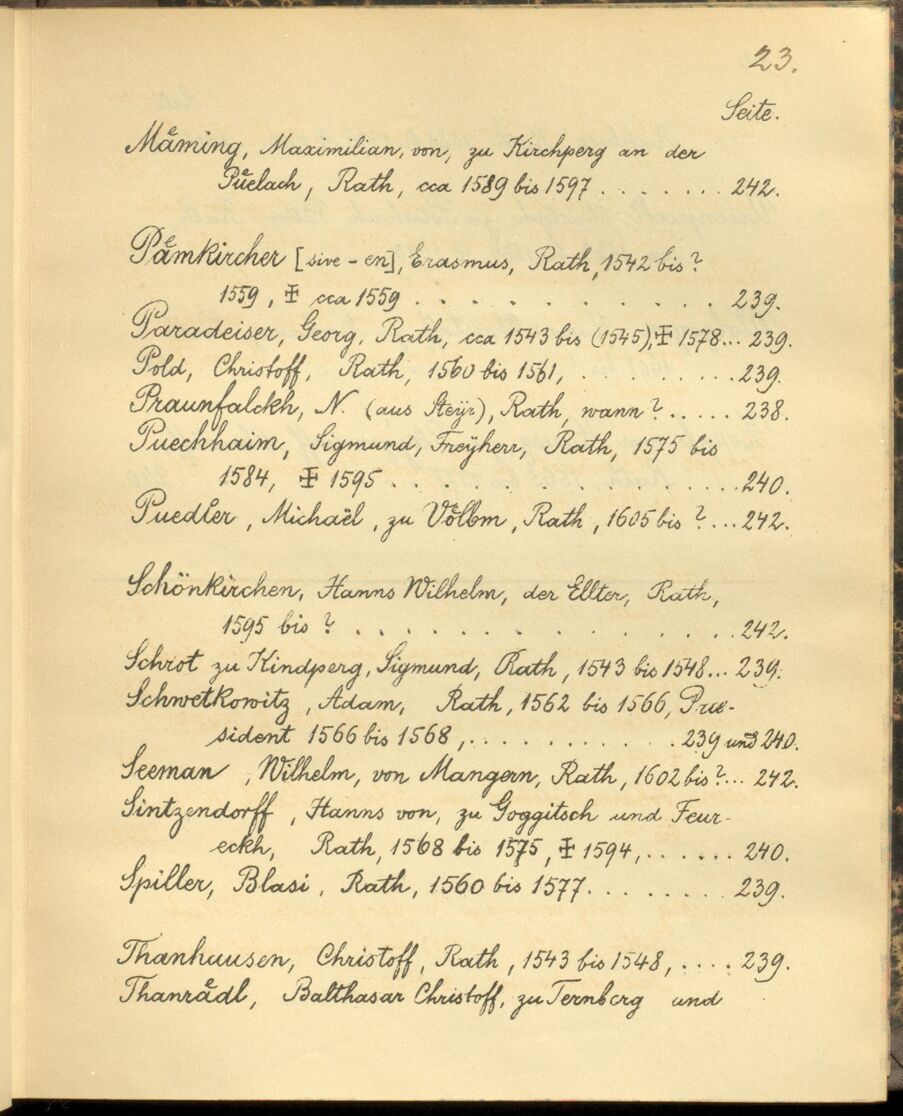 23.
Seite.
Maͤming, Maximilian, von, zu Kirchperg an der
Puͤelach, Rath, cca 1589 bis 1597 . . . . . . . 242.
Paͤmkircher [sive - en], Erasmus, Rath, 1542 bis ?
1559, ✠ cca 1559 . . . . . . . . . . . . 239.
Paradeiser, Georg, Rath, cca 1543 bis (1545), ✠ 1578... 239.
Pold, Christoff, Rath, 1560 bis 1561, . . . . . . . . . 239.
Praunfalckh, N. (aus Steÿr), Rath, wann ? . . . . . 238.
Puechhaim, Sigmund, Freÿherr, Rath, 1575 bis
1584, ✠ 1595 . . . . . . . . . . . . . . . . 240.
Puedler, Michaël, zu Voͤlbm, Rath, 1605 bis ? ... 242.
Schönkirchen, Hanns Wilhelm, der Ellter, Rath,
1595 bis ? . . . . . . . . . . . . . . . 242.
Schrot zu Kindperg, Sigmund, Rath, 1543 bis 1548... 239.
Schwetkowitz, Adam, Rath, 1562 bis 1566, Prae-
sident 1566 bis 1568, . . . . . . . . . . . 239 und 240.
Seeman, Wilhelm, von Mangern, Rath, 1602 bis ?... 242.
Sintzendorff, Hanns von, zu Goggitsch und Feur-
eckh, Rath, 1568 bis 1575, ✠ 1594, . . . . . . 240.
Spiller, Blasi, Rath, 1560 bis 1577 . . . . . . . . 239.
Thanhausen, Christoff, Rath, 1543 bis 1548, . . . . 239.
Thanraͤdl, Balthasar Christoff, zu Ternberg und